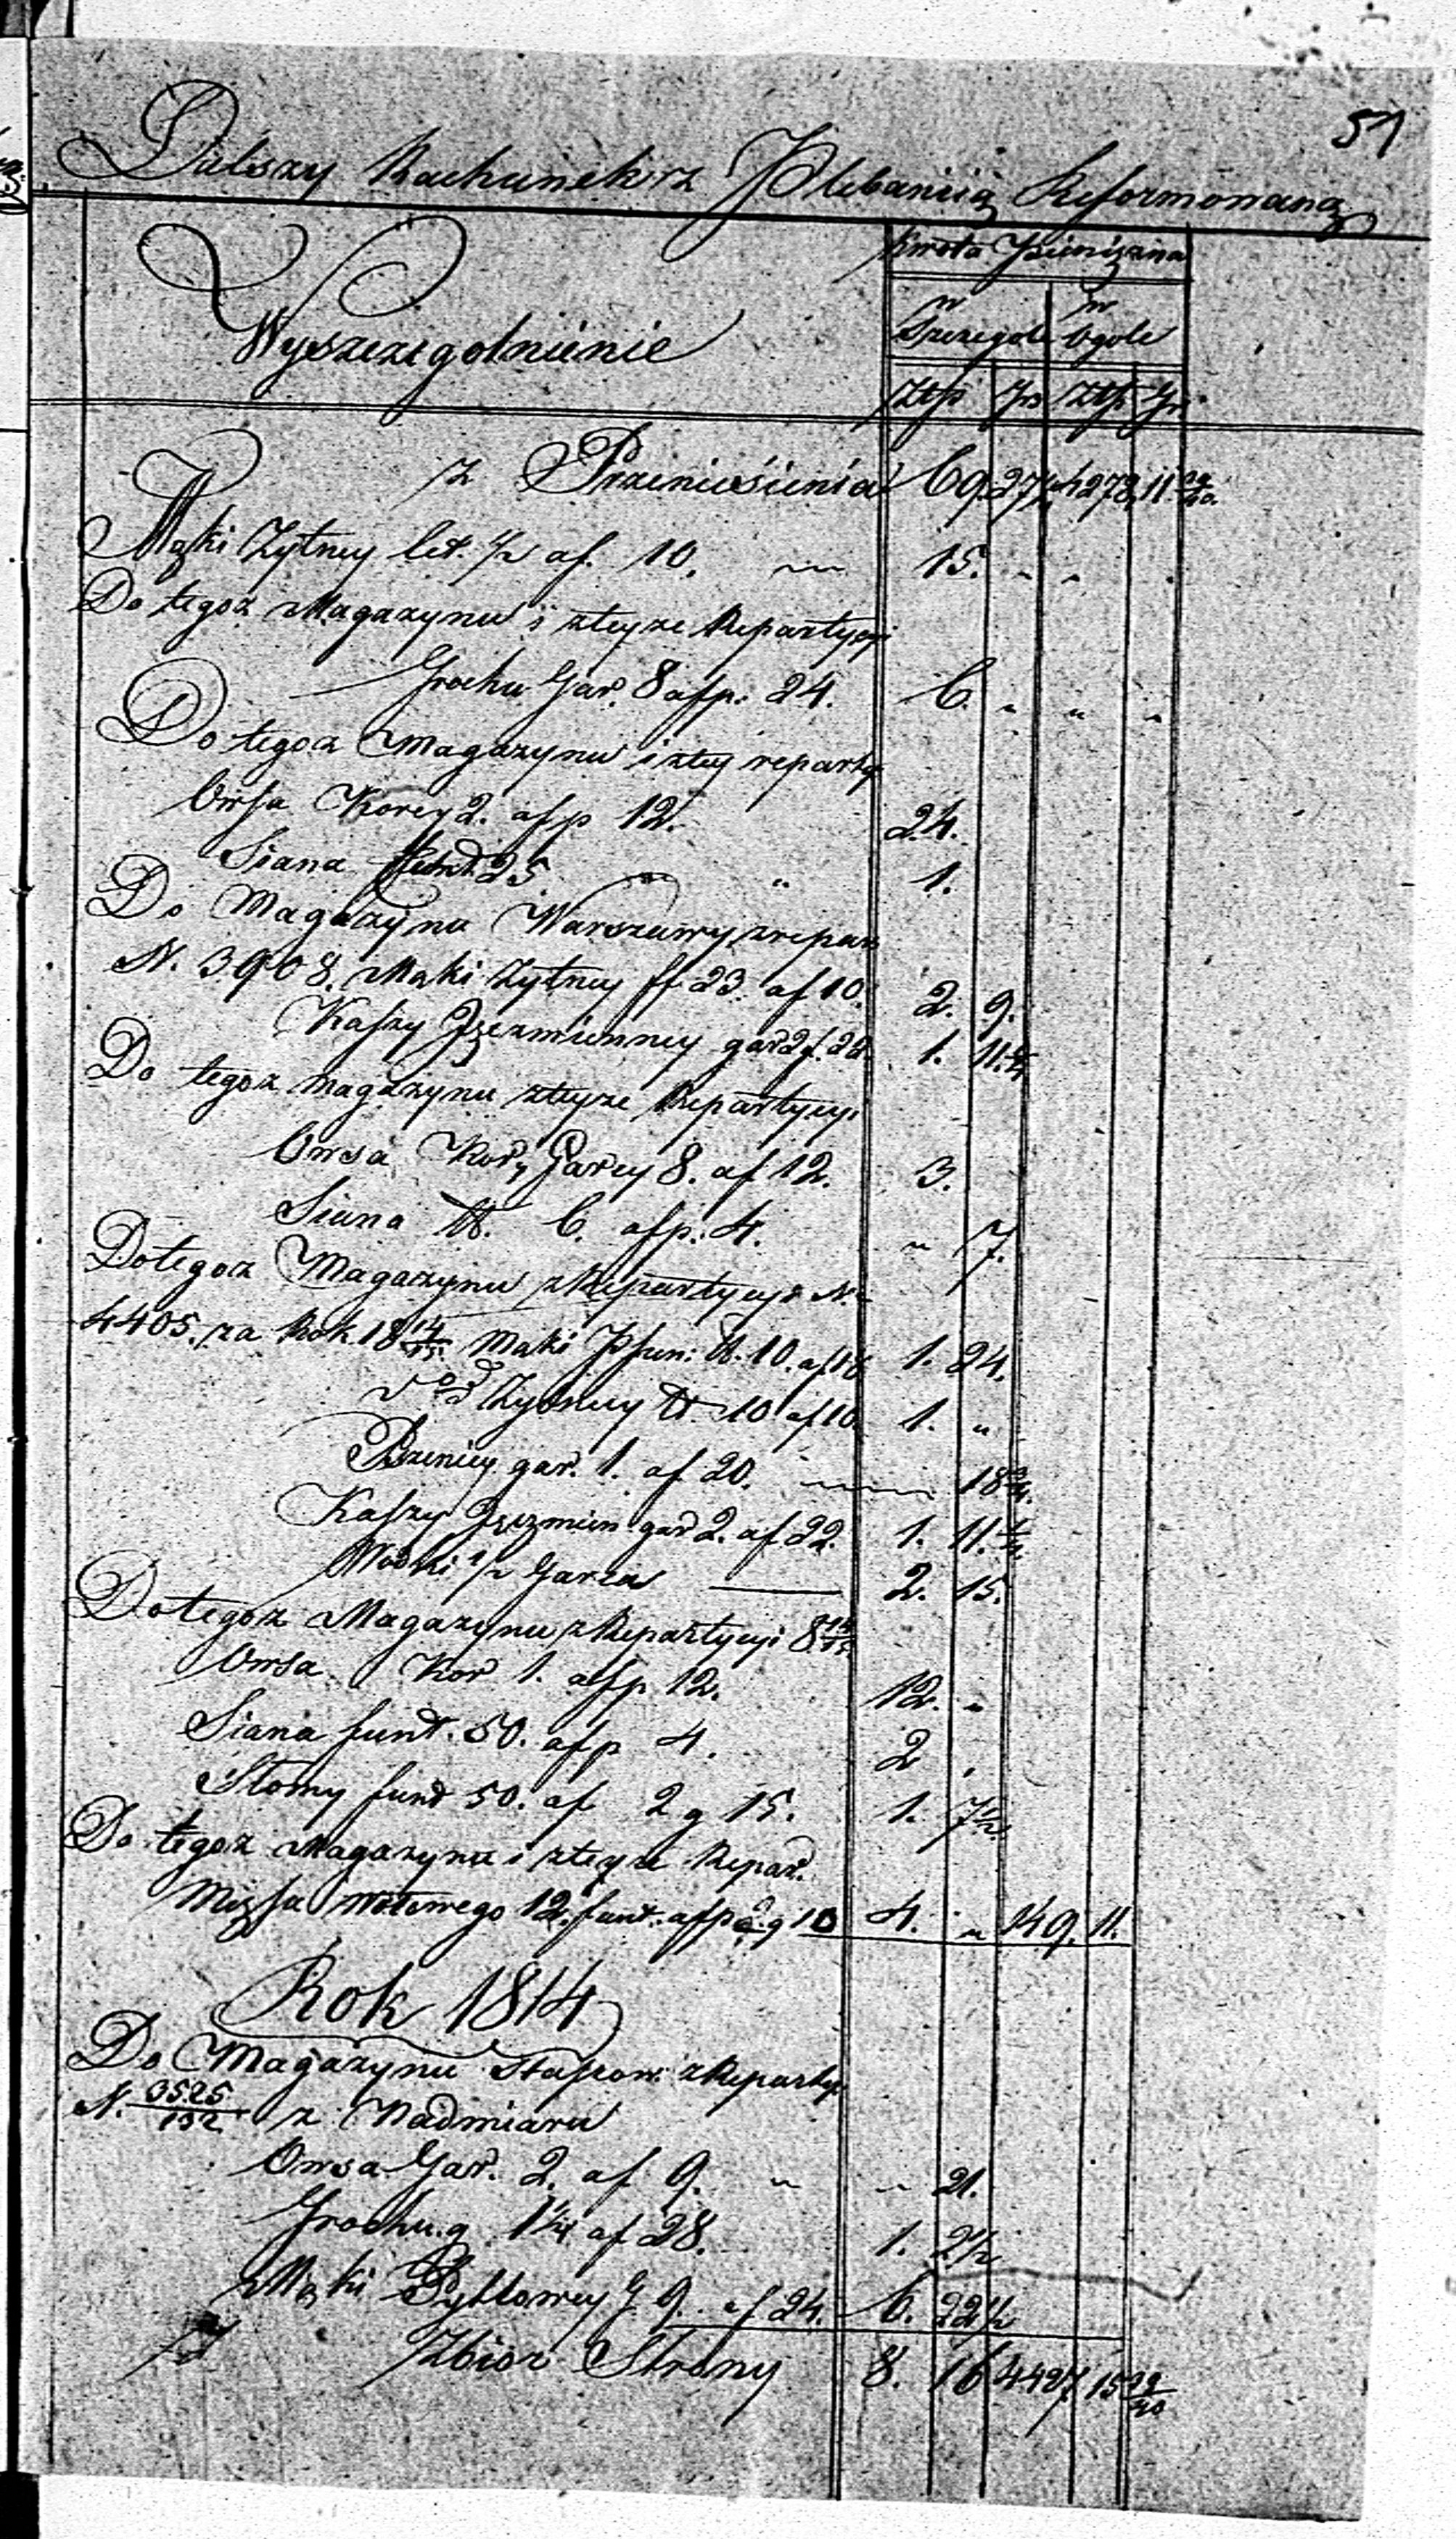 51
Dalszy Rachunek z Plebaniią Reformowaną
Wyszczegolnienie
Kwota Pieniężna
w Szczegole w Ogole
Złtp gr Złtp gr
z Przeniesienia 69. 27 4278 11 29/40
Mąki Zytney cet. 1/2 af. 10. 15. " "
Do tegoż Magazynu i zteyze Repartycyi
Grochu Gar. 8 afp. 24. 6. " " "
Do tegoż Magazynu i ztey reparty
Owsa Korcy 2. afp 12. 24.
Siana funt 25 " 1.
Do Magazynu Warszawy z repar
N. 3908. Mąki Zytney ff 23 af 10. 2. 9.
Kaszy Jęczmienney gar 2 f. 22 1. 11 1/4
Do tegoż magazynu zteyze Repartycyi
Owsa Kor, Garcy 8. af 12. 3.
Siana ff. 6. afp. 4. " 7.
Do tegoż Magazynu z Repartycyi N.
4405. za Rok 18 14/15. Mąki Pszen: ff. 10. af 18 1. 24.
Zytney ff. 10 af 10. 1. "
Pszenicy gar. 1. af 20. 18 3/4.
Kaszy Jęczmien gar 2. af 22. 1. 11 1/4.
Wodki 1/2 Garca 2. 15.
Do tegoż Magazynu z Repartycyi 8 14/15
Owsa Kor 1. afp 12. 12. "
Siana funt. 50. afp 4. 2 "
Słomy funt 50. af 2 g 15. 1. 7 1/2
Do tegoż Magazynu i zteyze Repar.
Mięsa wołowego 12. funt. afp g 10 4. " 149. 11.
Rok 1814
Do Magazynu Staszow. z Reparty
N. 3525/152 z Nadmiaru
Owsa Gar. 2. af 9. " " 21.
Grochu g. 1 1/4 af 28. 1. 2 1/2
Mąki Pytlowey g 9. af 24. 6. 22 1/2
Zbior Strony 8. 16 4427 15 29/40